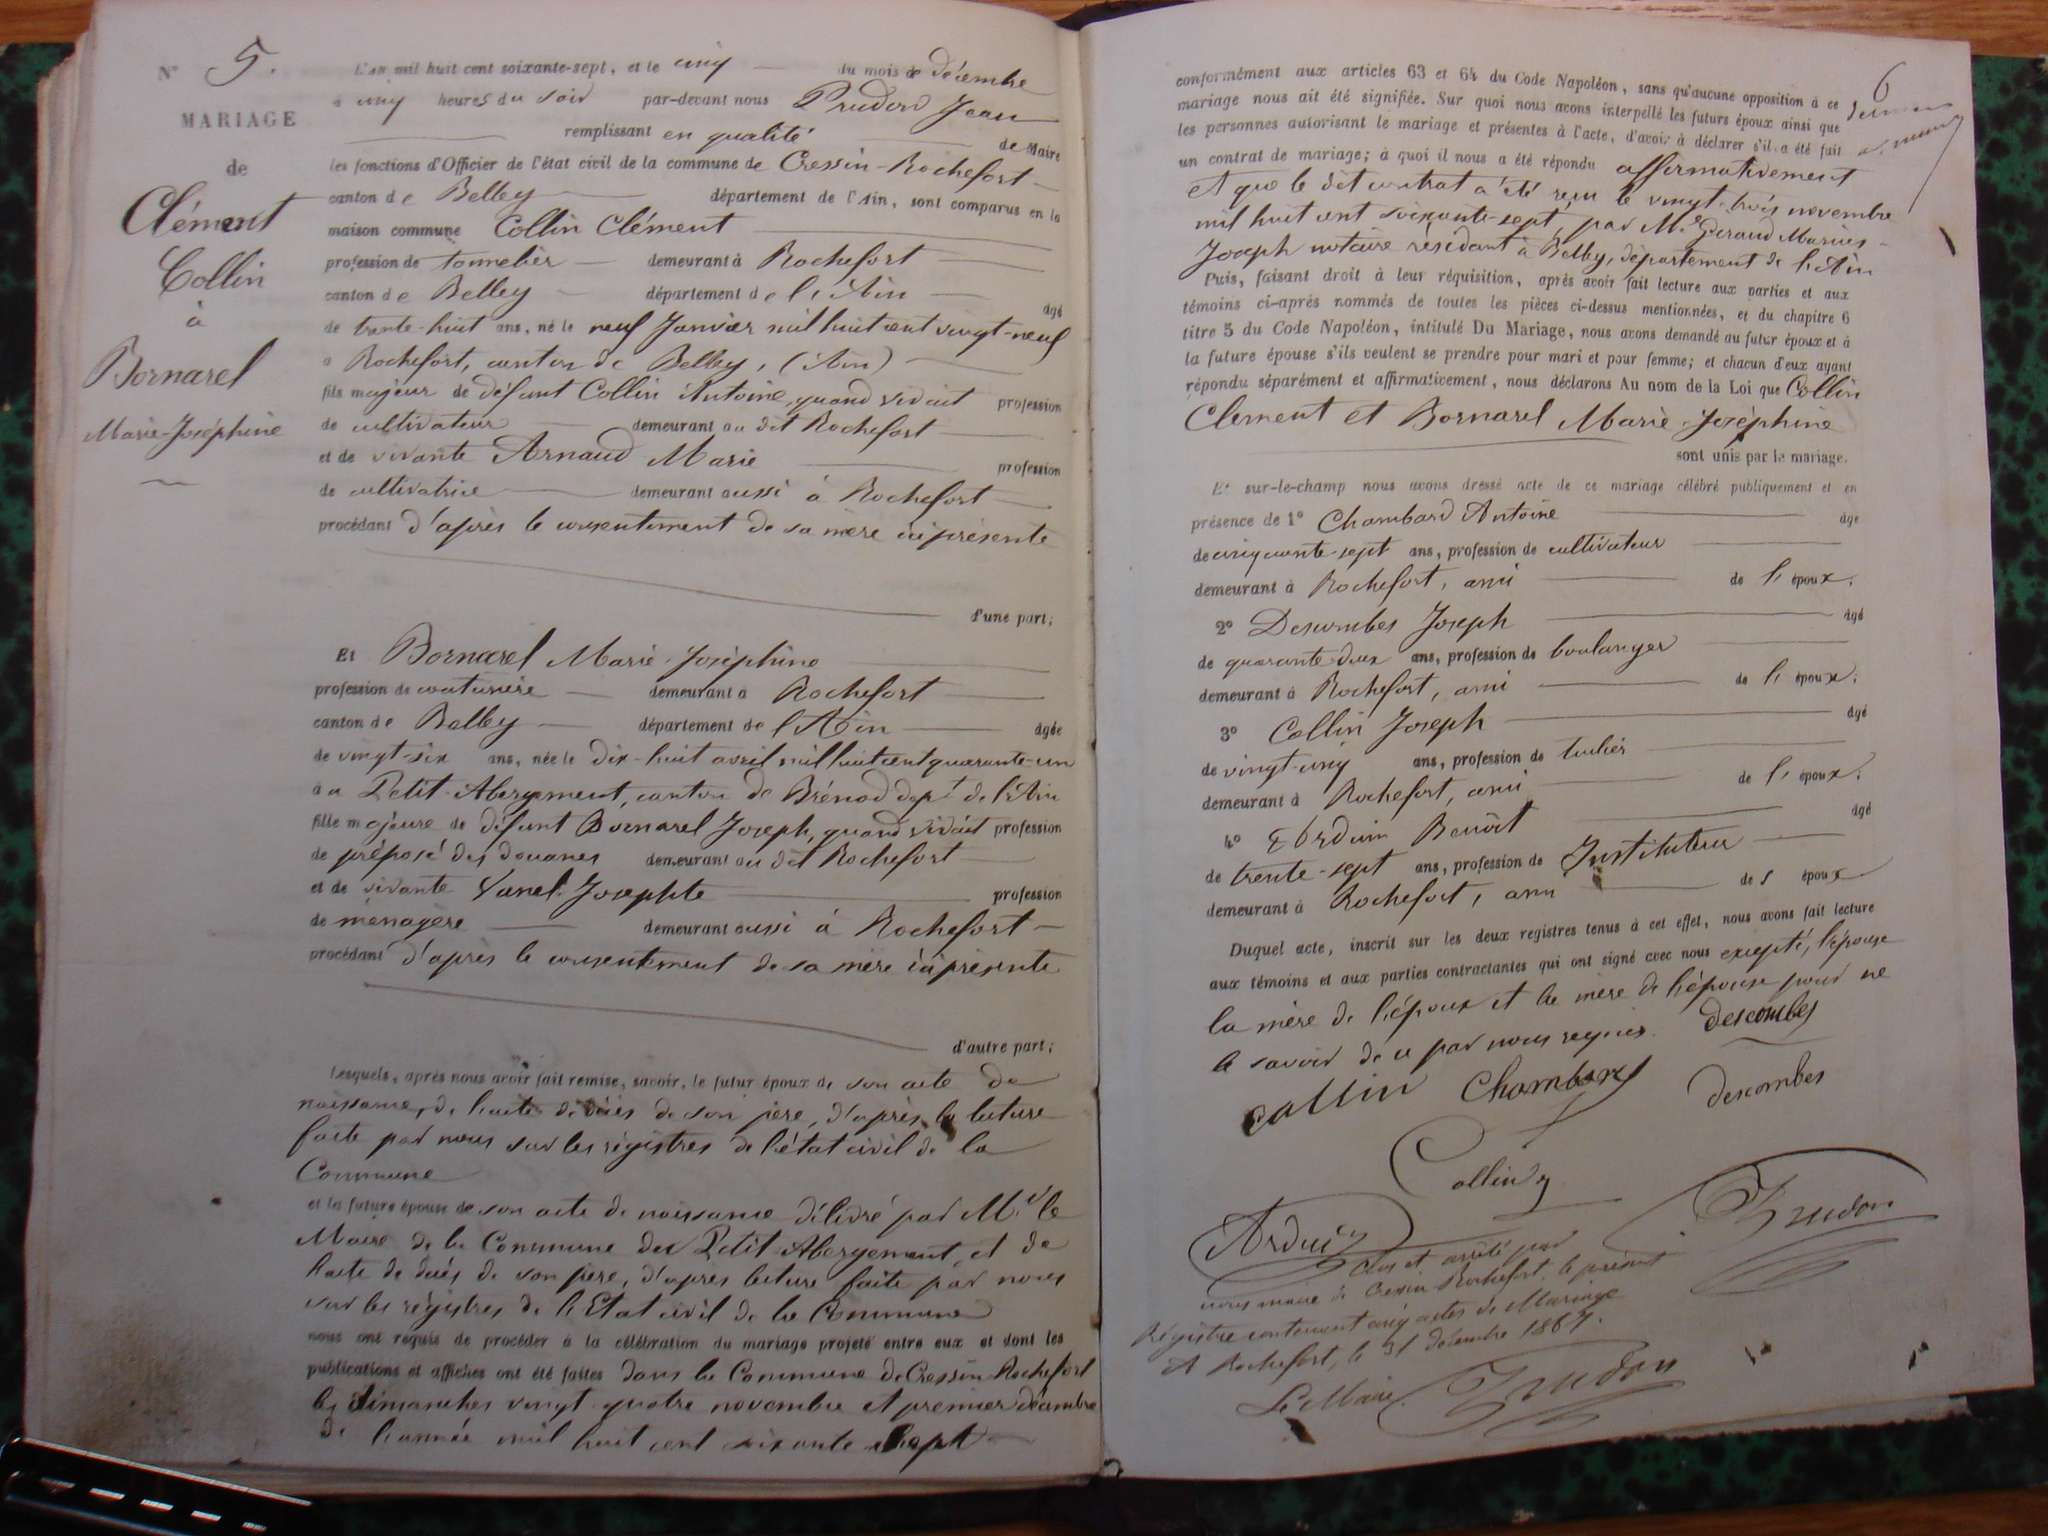 N° 5.
MARIAGE
de
Clément
Collin
à
Bornarel
Marie-Joséphine
L'AN mil huit cent soixante-sept, et le cinq du mois de décembre
à cinq heures du soir par-devant nous Prudon Jean
remplissant en qualité de Maire
les fonctions d'Officier de l'état civil de la commune de Cressin-Rochefort
canton de Belley département de l'Ain, sont comparus en la
maison commune Collin Clément
profession de tonnelier demeurant à Rochefort
canton de Belley département de l'Ain âgé
de trente-huit ans, né le neuf Janvier mil huit cent vingt-neuf
à Rochefort, canton de Belley, (Ain)
fils majeur de défunt Collin Antoine, quand vivait profession
de cultivateur demeurant au dit Rochefort
et de vivante Arnaud Marie profession
de cultivatrice demeurant aussi à Rochefort
procédant d'après le consentement de sa mère ici présente
d'une part;
Et Bornarel Marie-Joséphine
profession de couturière demeurant à Rochefort
canton de Belley département de l'Ain âgée
de vingt-six ans, née le dix-huit avril mil huit cent quarante-un
au Petit-Abergement, canton de Brénod dépt de l'Ain
fille majeure de défunt Bornarel Joseph, quand vivait profession
de préposé des douanes demeurant au dit Rochefort
et de vivante Vanel Josephte profession
de ménagère demeurant aussi à Rochefort
procédant d'après le consentement de sa mère ici présente
d'autre part;
Lesquels, après nous avoir fait remise, savoir, le futur époux de son acte de
naissance, de l'acte de décès de son père, d'après la lecture
faite par nous sur les régistres de l'état civil de la
Commune
et la future épouse de son acte de naissance délivré par Mr le
Maire de la Commune du Petit-Abergement, et de
l'acte de décès de son père, d'après lecture faite par nous
sur les régistres de l'Etat civil de la Commune
nous ont requis de procéder à la célébration du mariage projeté entre eux et dont les
publications et affiches ont été faites dans la Commune de Cressin-Rochefort
les dimanches vingt-quatre novembre et premier décembre
de l'année mil huit cent soixante-sept
6
conformément aux articles 63 et 64 du Code Napoléon, sans qu'aucune opposition à ce
mariage nous ait été signifiée. Sur quoi nous avons interpellé les futurs époux ainsi que
les personnes autorisant le mariage et présentes à l'acte, d'avoir à déclarer s'il a été fait
un contrat de mariage; à quoi il nous a été répondu affirmativement
et que le dit contrat a été reçu le vingt-trois novembre
mil huit cent soixante-sept, par Me Géraud Marius-
Joseph notaire résidant à Belley, département de l'Ain
Puis, faisant droit à leur réquisition, après avoir fait lecture aux parties et aux
témoins ci-après nommés de toutes les pièces ci-dessus mentionnées, et du chapitre 6
titre 5 du Code Napoléon, intitulé Du Mariage, nous avons demandé au futur époux et à
la future épouse s'ils veulent se prendre pour mari et pour femme; et chacun d'eux ayant
répondu séparément et affirmativement, nous déclarons Au nom de la Loi que Collin
Clément et Bornarel Marie-Joséphine
sont unis par le mariage.
Et sur-le-champ nous avons dressé acte de ce mariage célébré publiquement et en
présence de 1° Chambard Antoine âgé
de cinquante-sept ans, profession de cultivateur
demeurant à Rochefort, ami de l'époux;
2° Descombes Joseph âgé
de quarante-deux ans, profession de boulanger
demeurant à Rochefort, ami de l'époux;
3° Collin Joseph âgé
de vingt-cinq ans, profession de tuilier
demeurant à Rochefort, ami de l'époux;
4° Arduin Benoît âgé
de trente-sept ans, profession de Instituteur
demeurant à Rochefort, ami des époux
Duquel acte, inscrit sur les deux registres tenus à cet effet, nous avons fait lecture
aux témoins et aux parties contractantes qui ont signé avec nous excepté, l'épouse
la mère de l'époux et la mère de l'épouse pour ne
le savoir de ce par nous requis. descombes
Collin Chambard descombes
Collin
Arduin Prudon
Clos et arrêté par
nous maire de Cressin-Rochefort, le présent
Régistre contenant cinq actes de Mariage
A Rochefort, le 31 décembre 1867.
Le Maire Prudon